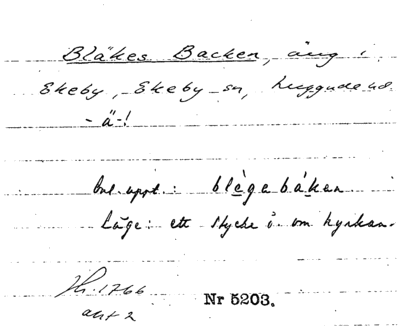 Bläkes Backen, äng i
Ekeby, Ekeby sn, Luggude hd.
-ä-!
Enl. uppt.: blègebákan
Läge: ett stycke ö. om kyrkan.
1766
akt 2
Nr 5203.